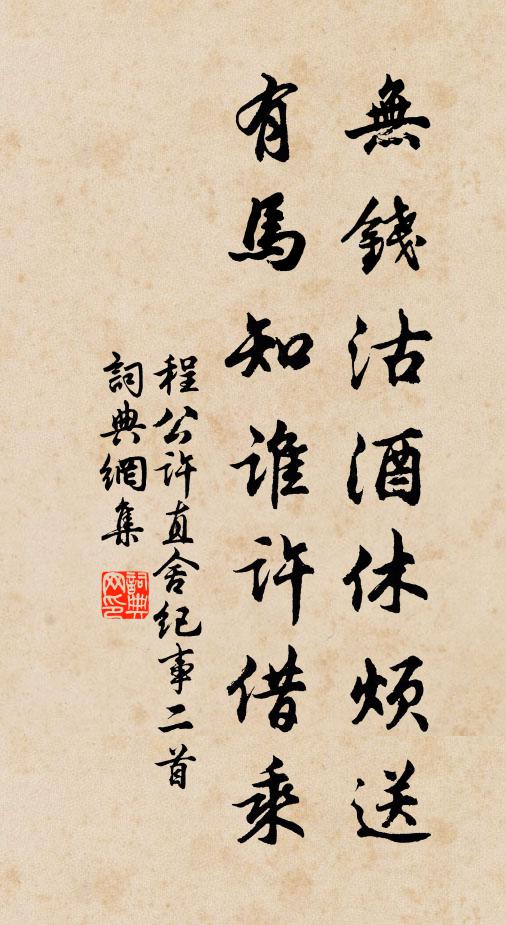 無錢沽酒休煩送
有馬知誰許借乘
程公許直舍紀事二首
詞典網集
詞典网印